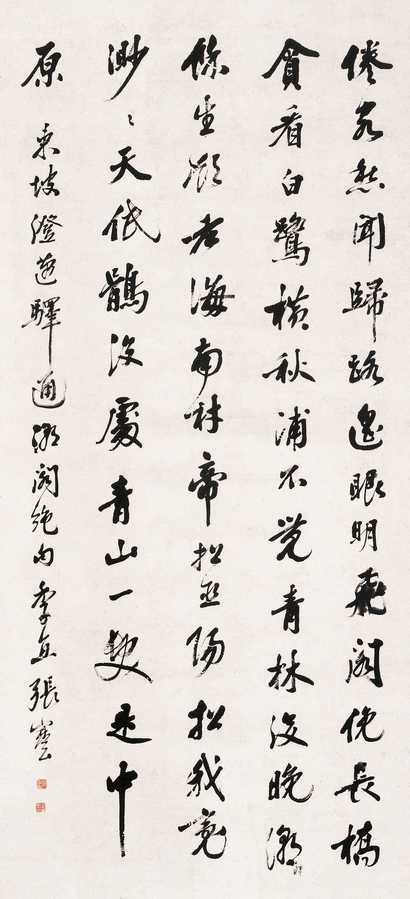 倦客愁聞歸路遙眼明飛閣俛長橋
貪看白鷺橫秋浦不覺青林沒晚潮
餘生願老海南村帝招巫陽招我魂
渺〻天低鶻沒處青山一髮是中
原 東坡澄邁驛通潮閣絕句 季直張謇